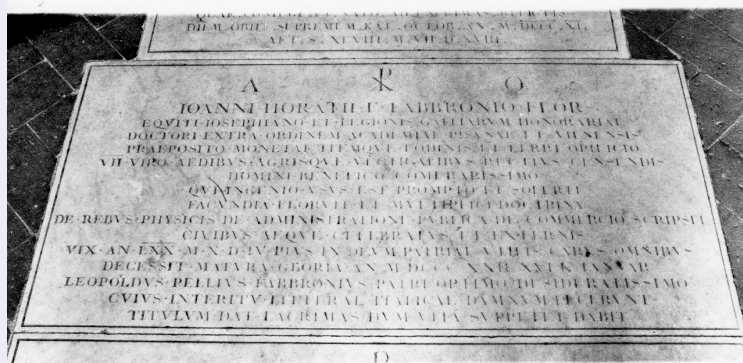 DIEM · OBIIT · SUPREMUM · KAL · OCTOBR · AN · M · DCCC · XI
AET · S · XLVIII · M · VII · D · XVIII
A ☧ Ω
IOANNI · HORATII · F · FABBRONIO · FLOR
EQVITI · IOSEPHIANO · ET · LEGIONIS · GALLIARVM · HONORARIAE
DOCTORI · EXTRA · ORDINEM · ACADEMIAE · PISANAE · ET · VILNENSIS
PRAEPOSITO · MONETAE · ITEMQVE · FODINIS · ET · FERRI · OPIFICIO
VII · VIRO · AEDIBVS · AGRISQVE · VECTIGALIBVS · CENSENDIS
HOMINI · BENEFICO · COMI · RARISSIMO
QVI · INGENIO · VSVS · EST · PROMPTO · ET · SOLERTI
FACVNDIA · FLORVIT · ET · MVLTIPLICI · DOCTRINA
DE · REBVS · PHYSICIS · DE · ADMINISTRATIONE · PVBLICA · DE · COMMERCIO · SCRIPSIT
CIVIBVS · AEQVE · CELEBRATVS · ET · EXTERNIS
VIX · AN · LXX · M · X · D · IV · PIVS · IN · DEVM · PATRIAE · VTILIS · CARVS · OMNIBVS
DECESSIT · MATVRA · GLORIA · AN · M · DCCC · XXII · XVI · K · IANVAR
LEOPOLDVS · PELLIVS · FABBRONIVS · PATRI · OPTIMO · DESIDERATISSIMO
CVIVS · INTERITV · LITTERAE · ITALICAE · DAMNVM · FECERVNT
TITVLVM · DAT · LACRIMAS · DVM · VITA · SVPPETET · DABIT